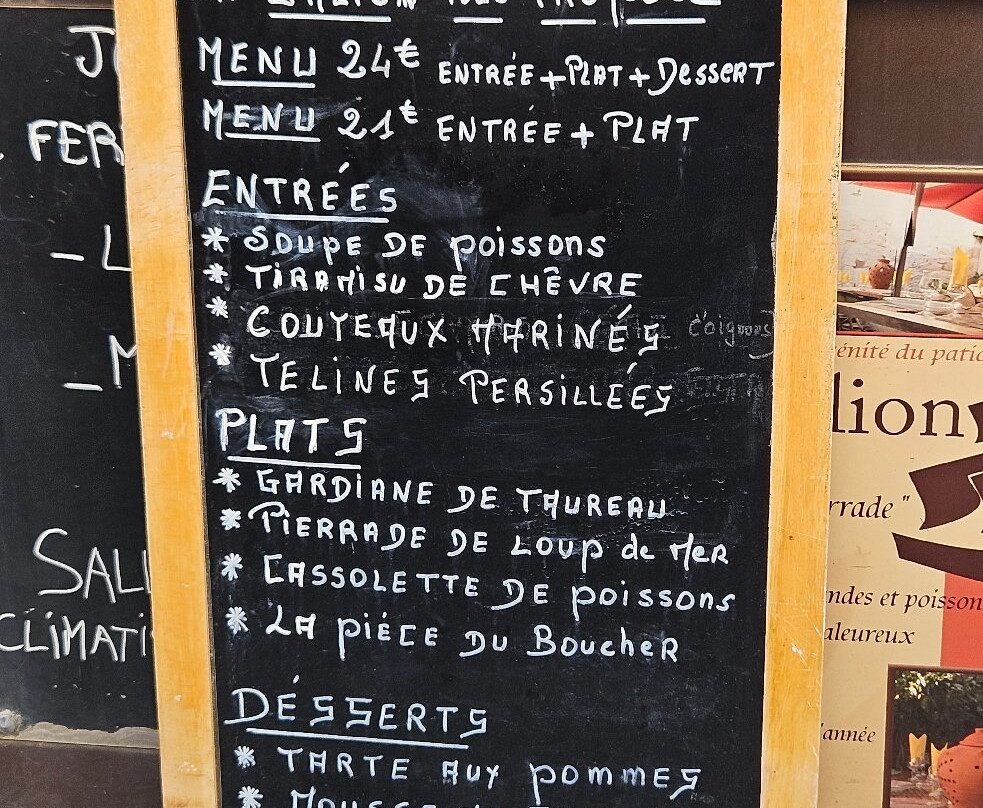 MENU 24€ ENTRÉE+PLAT+DESSERT
MENU 21€ ENTRÉE + PLAT
ENTRÉES
* SOUPE DE poissons
* TIRAMISU DE CHÊVRE
* COUTEAUX MARINÉS
* TELINES PERSILLÉES
PLATS
* GARDIANE DE TAUREAU
* PIERRADE DE LOUP de MER
* CASSOLETTE DE poissons
* LA PIÉCE DU BoucheR
DÉSSERTS
* TARTE AUX pommes
FER
- L
- M
SALL
CLIMATI
énité du patio
lion
rrade "
ndes et poisson
aleureux
'année